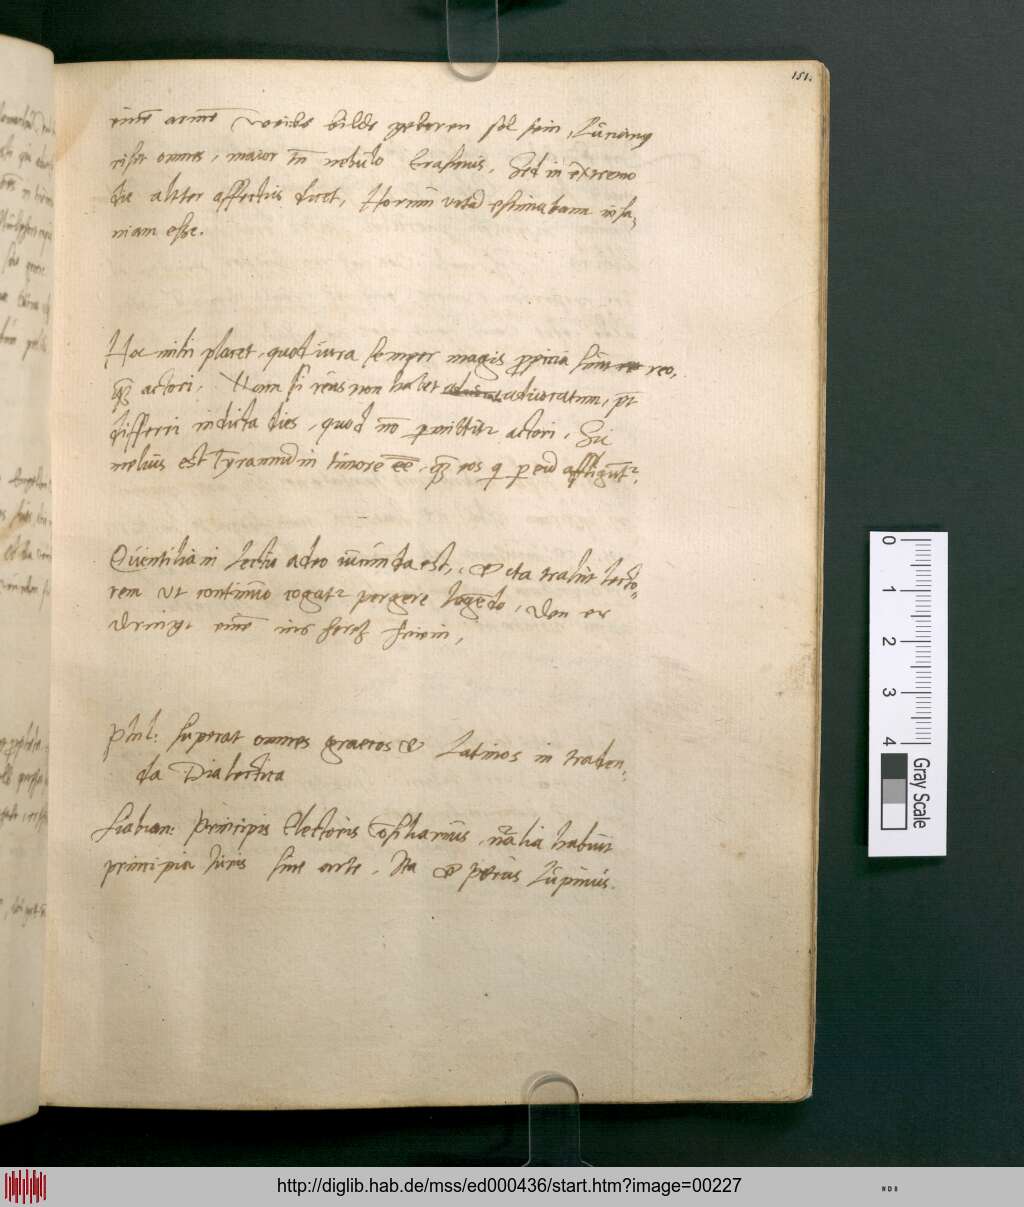 151.
einē armē weibs bilde geboren sol sein, Luciang
riset omnes, maior tn̄ nebulo Erasmus. Sed in extremo
die aliter affectus dicet, Horum vitā estimabam insa,
niam esse.
Hoc mihi placet, quod iura semper magis ꝓpicia sunt reo,
qͣ actori. Nam si reus non habet aduocatum, pt
differri indicta dies, quod nō permittitr actori, Sic
melius est Tyrannū in timore ēē, qͣ eos q per eū affligūtr.
Quintiliani lectio adeo iucunda est, & ita trahit lecto=
rem ut continuo cogatr pergere legēdo, Den er
dringt einē ins hertz hinein,
Phil: superat omnes graecos & Latinos in traden,
da Dialectica
Fabian: Principis Electoris Cōsiliarius, nāalia habuit
principia Iuris sine arte. Ita & petrus Lupinus.
0
1
2
3
4
Gray Scale
http://diglib.hab.de/mss/ed000436/start.htm?image=00227